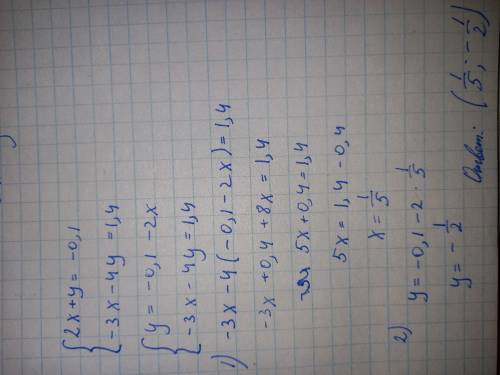 { 2x+y = -0,1
{ -3x-4y=1,4
{ y = -0,1-2x
{ -3x-4y=1,4
1) -3x-4(-0,1-2x)=1,4
-3x+0,4+8x=1,4
5x+0,4=1,4
5x=1,4-0,4
x=1/5
2) y=-0,1-2·1/5
y=-1/2
Ответ: (1/5; -1/2)